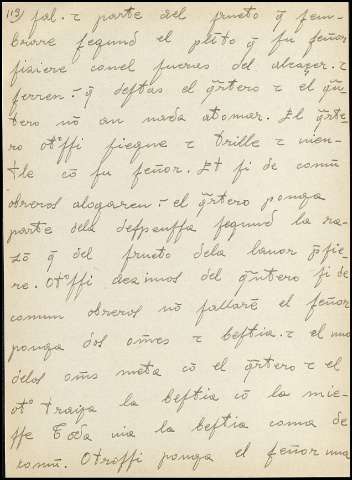 113) fal. τ parte del fructo q̃ sem-
brare segund el plṽto q̃ su señor
fiziere conel fueras del alcaçer. τ
ferren. q̃ destas el q̃rtero τ el q̃r-
tero nõ an nada atomar. El q̃rte-
ro ot°ssi siegue τ trille τ uien-
tle cõ su señor. Et si de comũ
obreros alogaren. el q̃rtero ponga
parte dela despensa segund la ra-
zõ q̃ del fructo dela lauor p̃sie-
re. Ot°ssi dezimos del q̃rtero si de
comun obreros nõ fallarẽ el señor
ponga dos om̃es τ bestia. τ el uno
delos om̃s meta cõ el q̃rtero τ el
ot° traya la bestia cõ la mie-
sse Toda uia la bestia coma de
comũ. Otrossi ponga el señor una